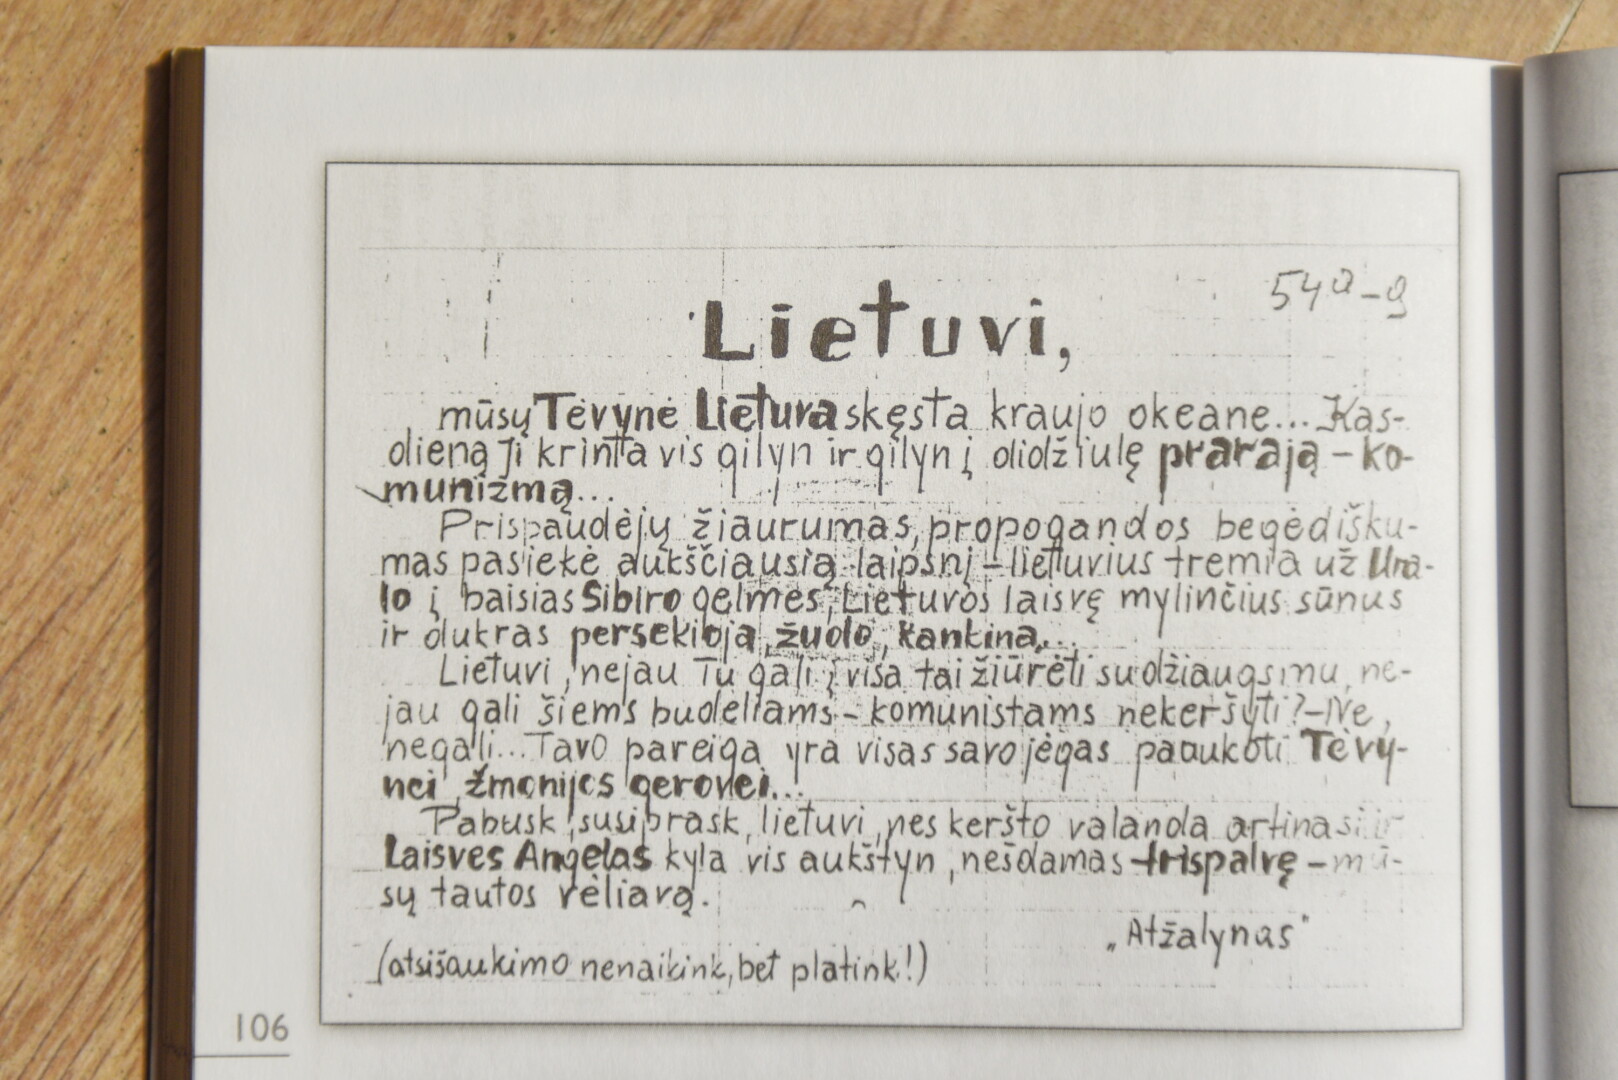 54a-g
Lietuvi,
mūsų Tėvynė Lietuva skęsta kraujo okeane... Kas-
dieną Ji krinta vis gilyn ir gilyn į didžiulę prarają - ko-
munizmą...
Prispaudėjų žiaurumas, propogandos begėdišku-
mas pasiekė aukščiausią laipsnį - lietuvius tremia už Ura-
lo į baisias Sibiro gelmes, Lietuvos laisvę mylinčius sūnus
ir dukras persekioja, žudo, kankina...
Lietuvi, nejau Tu gali į visa tai žiūrėti su džiaugsmu, ne-
jau gali šiems budeliams - komunistams nekeršyti? - Ne,
negali... Tavo pareiga yra visas savo jėgas paaukoti Tėvy-
nei, žmonijos gerovei...
Pabusk, susiprask, lietuvi, nes keršto valanda artinasi ir
Laisvės Angelas kyla vis aukštyn, nešdamas trispalvę - mū-
sų tautos vėliavą.
„Atžalynas"
(atsišaukimo nenaikink, bet platink!)
106